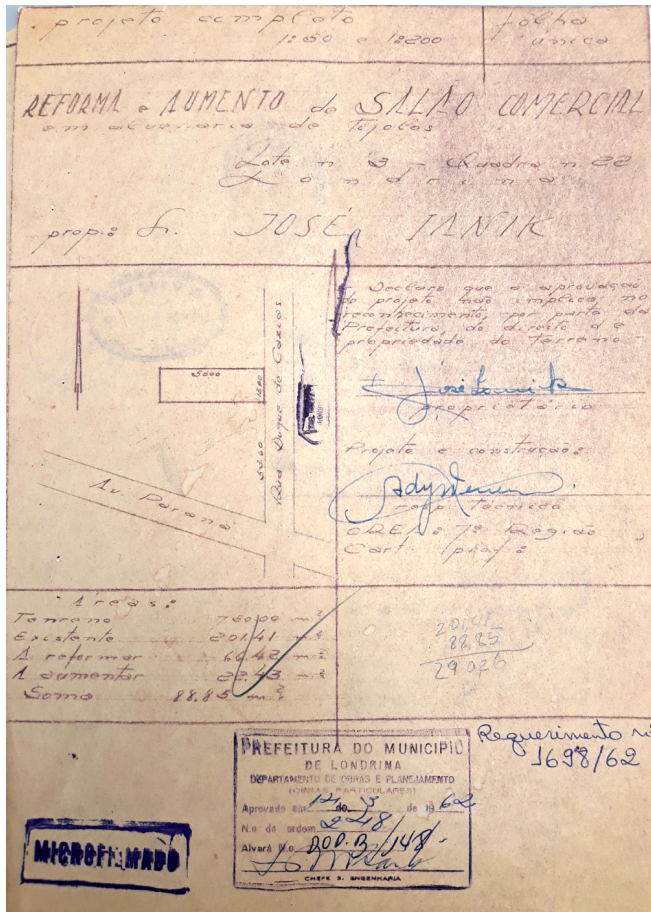 projeto completo
1:50 e 1:200
folha
única
REFORMA e AUMENTO do SALÃO COMERCIAL
em alvenaria de tijolos
Lote n 3 - Quadra n. 22
Londrina
prop.: Sr. JOSÉ IANIK
Declaro que a aprovação
do projeto não implica no
reconhecimento, por parte da
Prefeitura, do direito de
propriedade do terreno.
proprietário
Projeto e construção:
resp. técnico
CREA: 7ª Região
Cart. prof.:
5000
1500
5200
Rua Duque de Caxias
Av. Paraná
Áreas:
Terreno 750,00 m²
Existente 201,41 m²
A reformar 66,42 m²
A aumentar 22,43 m²
Soma 88,85 m²
201,41
88,85
290,26
Requerimento nº
1698/62
PREFEITURA DO MUNICIPIO
DE LONDRINA
DEPARTAMENTO DE OBRAS E PLANEJAMENTO
(OBRAS PARTICULARES)
Aprovado em 14 de 3 de 1962
N.o de ordem 248/
Alvará N.o 148
CHEFE S. ENGENHARIA
MICROFILMADO